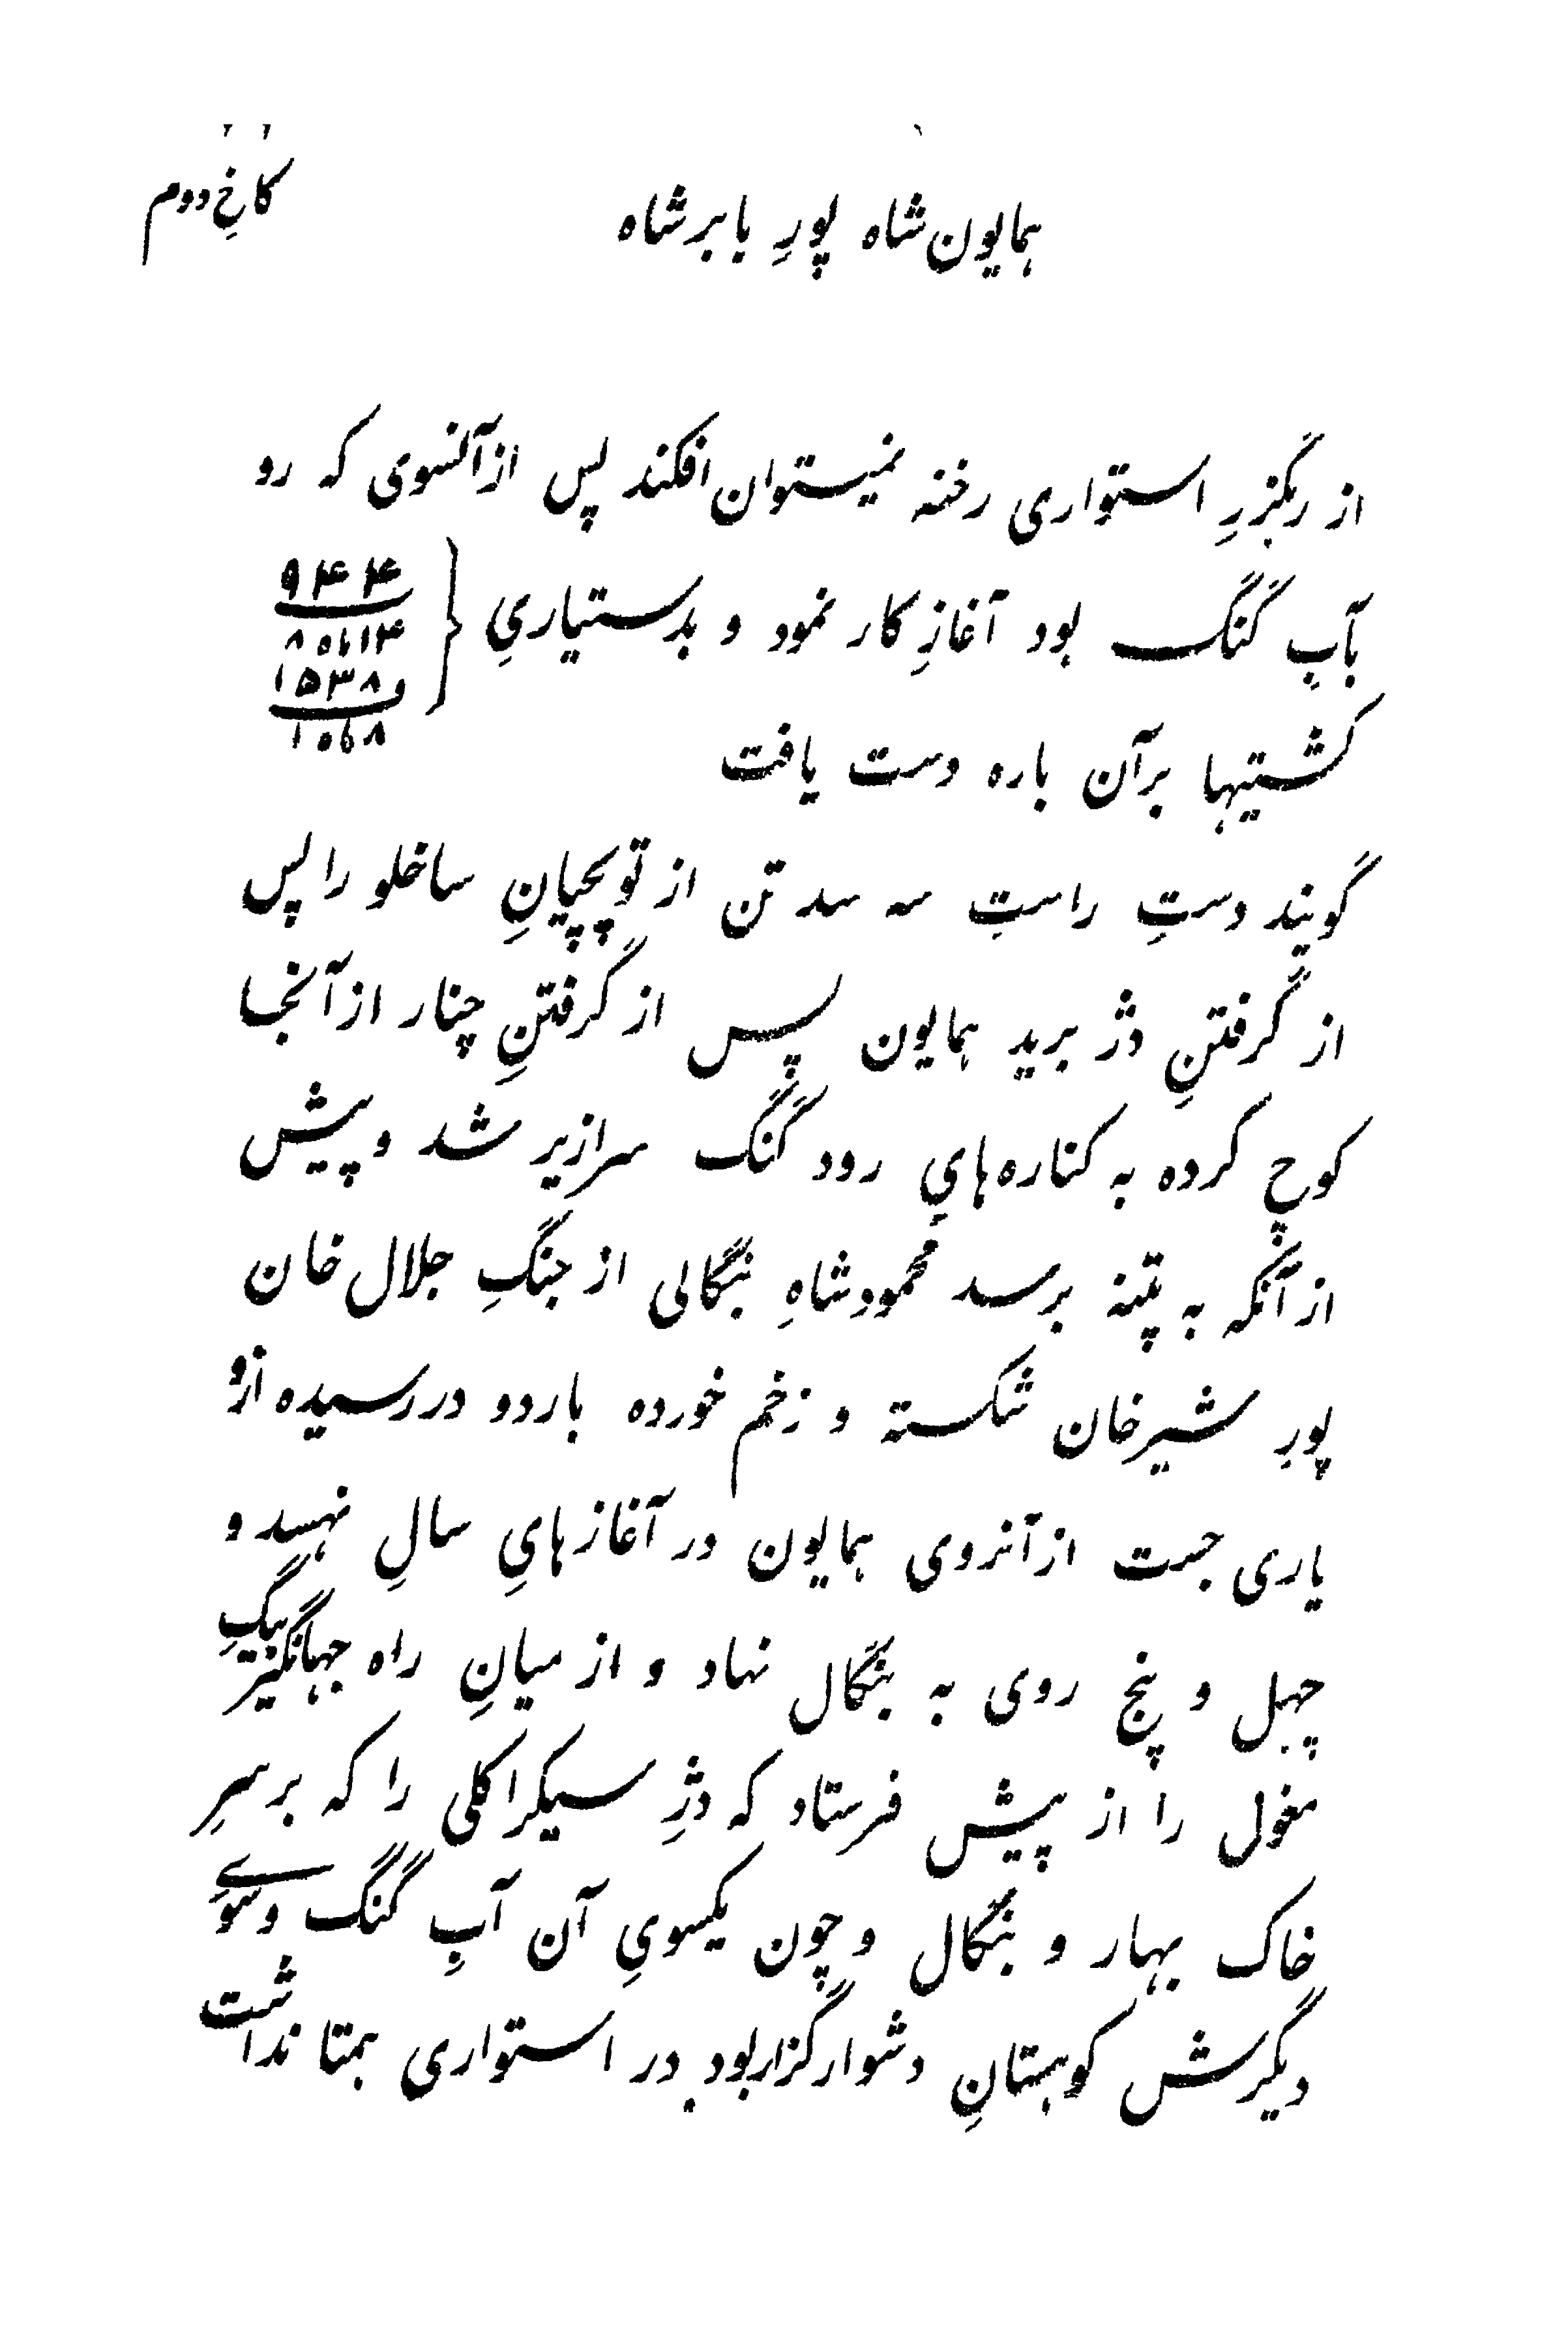 کاخِ دوم
همایون شاه پورِ بابر شاه
از رهگزرِ استواری رخنه نمیستوان افکند پس از آنسوی که رو
بآبِ گنگ بود آغازِ کار نمود و بدستیاریِ
۹۴۴
۱۵۳۸
کشتیها بر آن باره دست یافت
گویند دستِ راستِ سه سد تن از توپچیانِ ساخلو را پس
از گرفتنِ دژ برید همایون پس از گرفتنِ چنار از آنجا
کوچ کرده به کناره‌هایِ رود گنگ سرازیر شد و پیش
از آنکه به پتنه برسد محمود شاهِ بنگالی از جنگِ جلال خان
پورِ شیرخان شکسته و زخم خورده باردو در رسیده ازو
یاری جست از آنروی همایون در آغازهایِ سالِ نهسد و
چهل و پنج روی به بنگال نهاد و از میانِ راه جهانگیر بیگِ
مغول را از پیش فرستاد که دژِ سیکراکلی را که بر سرِ
خاک بهار و بنگال و چون یکسویِ آن آبِ گنگ و سوے
دیگرش کوهستانِ دشوار گزار بود در استواری همتا نداشت